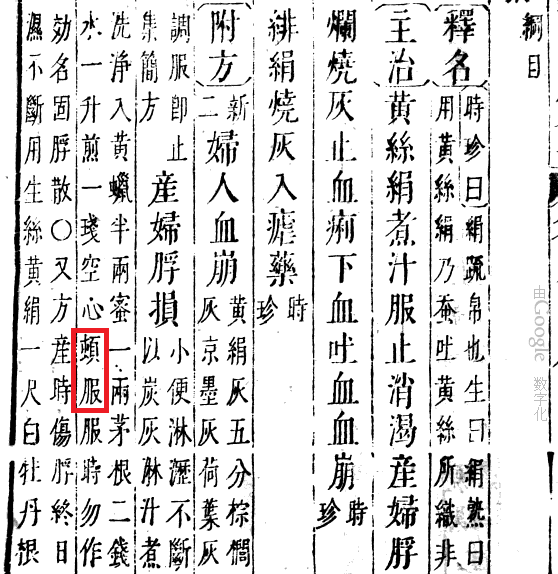 綱目
釋名時珍曰絹疏帛也生曰絹熟曰
用黃絲絹乃蚕吐黃絲所織非
主治黃絲絹煮汁服止消渴產婦脬
爛燒灰止血痢下血吐血血崩時珍
緋絹燒灰入瘧藥時珍
附方新二婦人血崩黃絹灰五分棕櫚
灰京墨灰荷葉灰
調服即止
集簡方產婦脬損小便淋瀝不斷
以炭灰淋汁煮
洗淨入黃蠟半兩蜜一兩茅根二錢
水一升煎一琖空心頓服服時勿作
効名固脬散〇又方產時傷脬終日
濕不斷用生絲黃絹一尺白牡丹根
由 Google 数字化